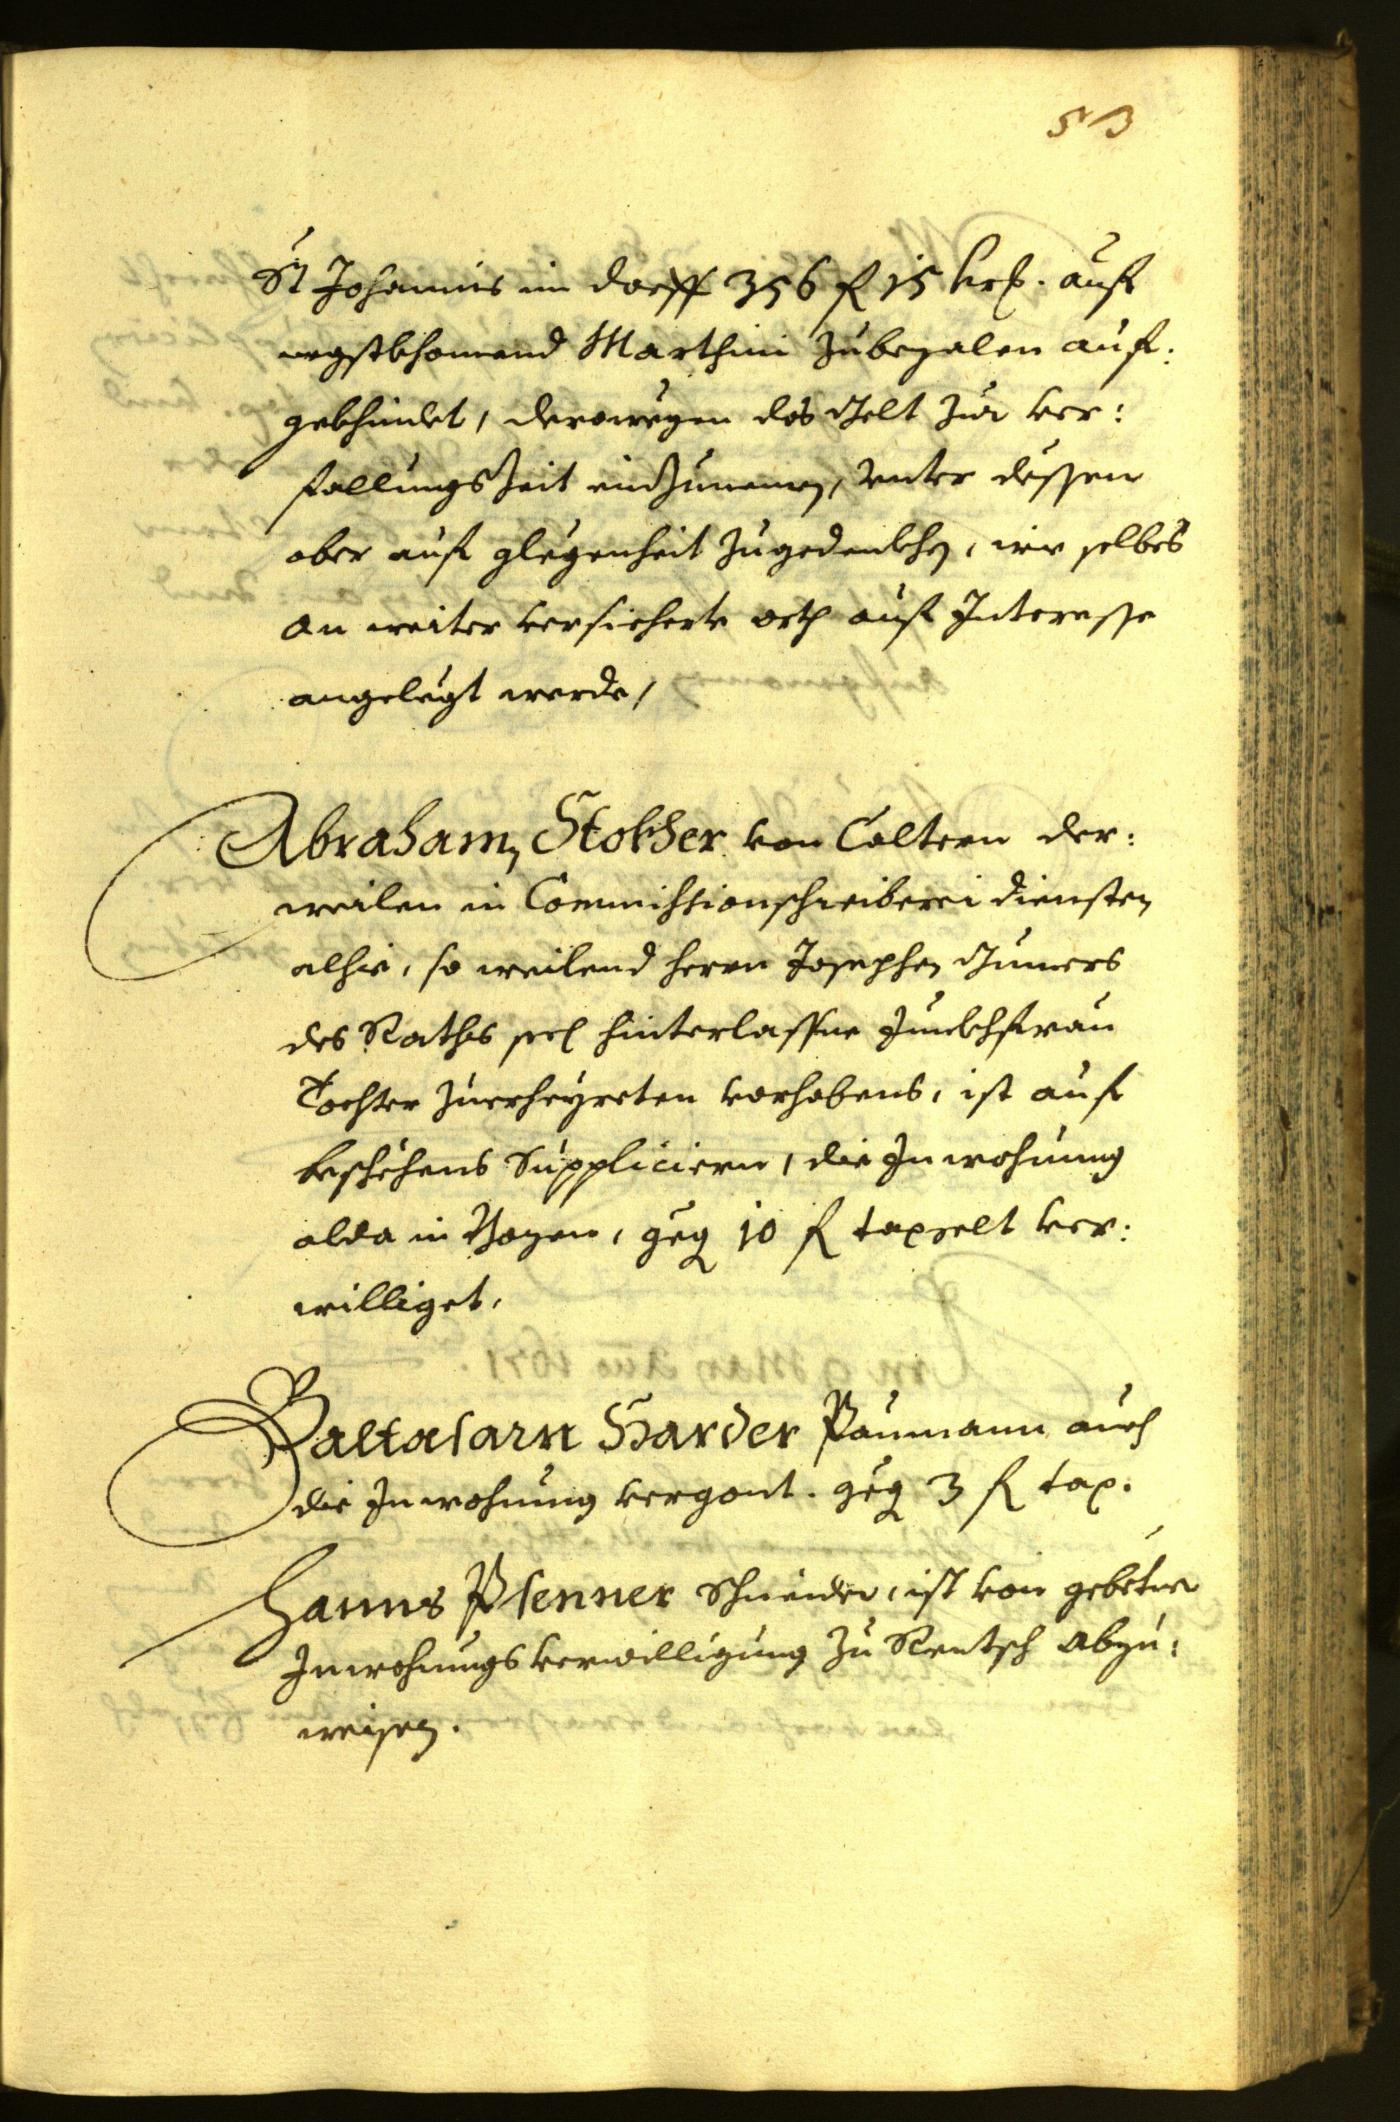 53
St Johannis im dorff 356 f 15 krz. auf
negstkhomend Marthini zubezalen auf:
gekhündet, derowegen das Gelt zur ver:
fallungs Zeit einzunemen, vnter dessen
aber auf glegenheit zugedenkhen, wie selbes
an weiter versicherte orth auf Interesse
angelegt werde,
Abraham Stokher von Caltern der:
weilen in Commissionschreiberei diensten
alhie, so weilend herrn Josephen
des Raths sel hinterlassne Junckhfrau
Tochter zuerheyreten vorhabens, ist auf
beschehens Suppliciern, die Inwohnung
alda in Bozen, geg 10 f taxgelt ver:
williget.
Baltasarn Harder Paumann auch
die Inwohnung vergont. geg 3 f tax.
Hanns Psenner Schneider, ist von gebetner
Inwohnungs verwilligung zu Rentsch abzu:
weisen.